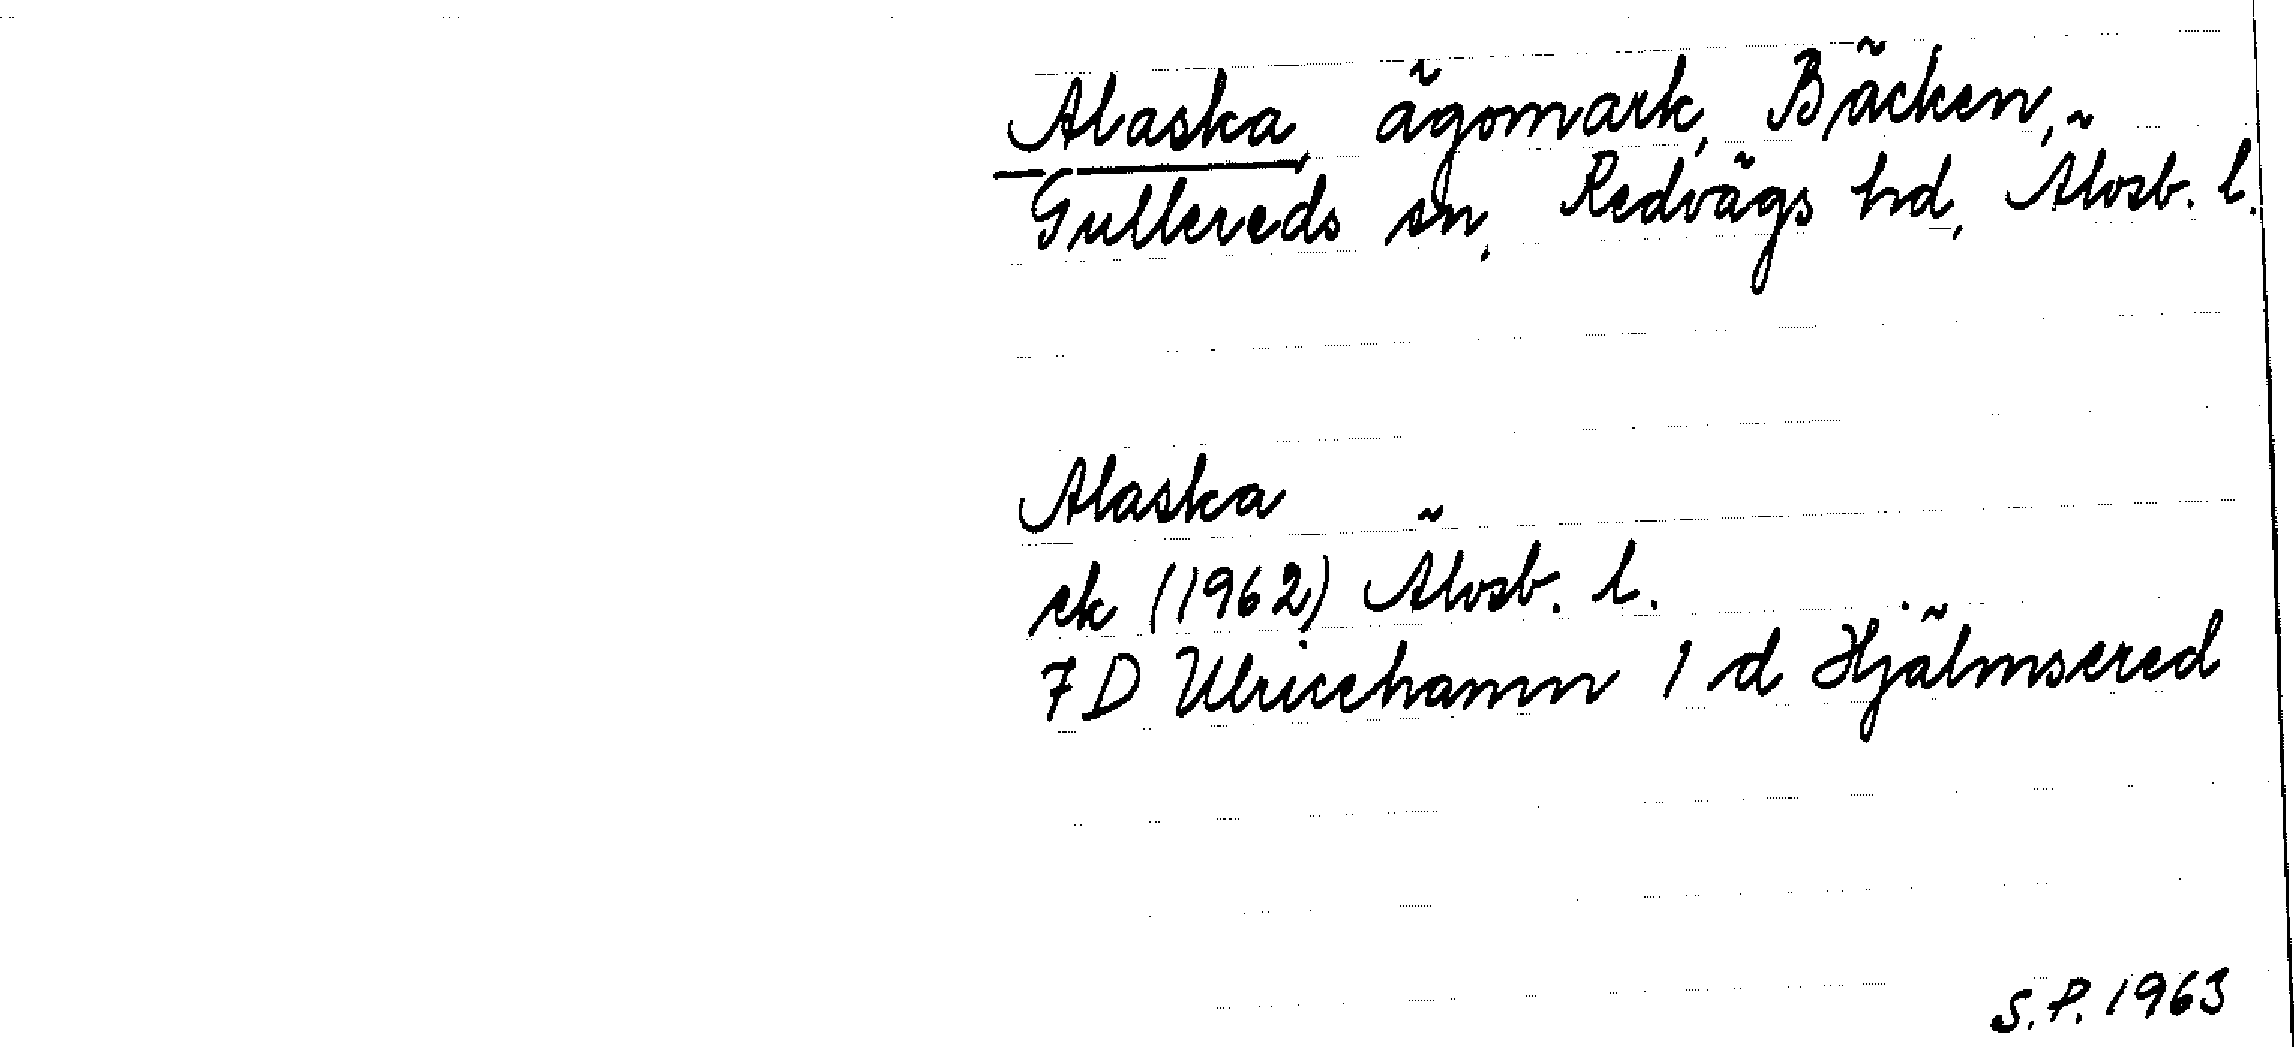 Alaska, ägomark, Bäcken,
Gullereds sn, Redvägs hd, Älvsb. l.
Alaska
ek (1962) Älvsb. l.
7 D Ulricehamn 1 d Hjälmsered
S.P. 1963